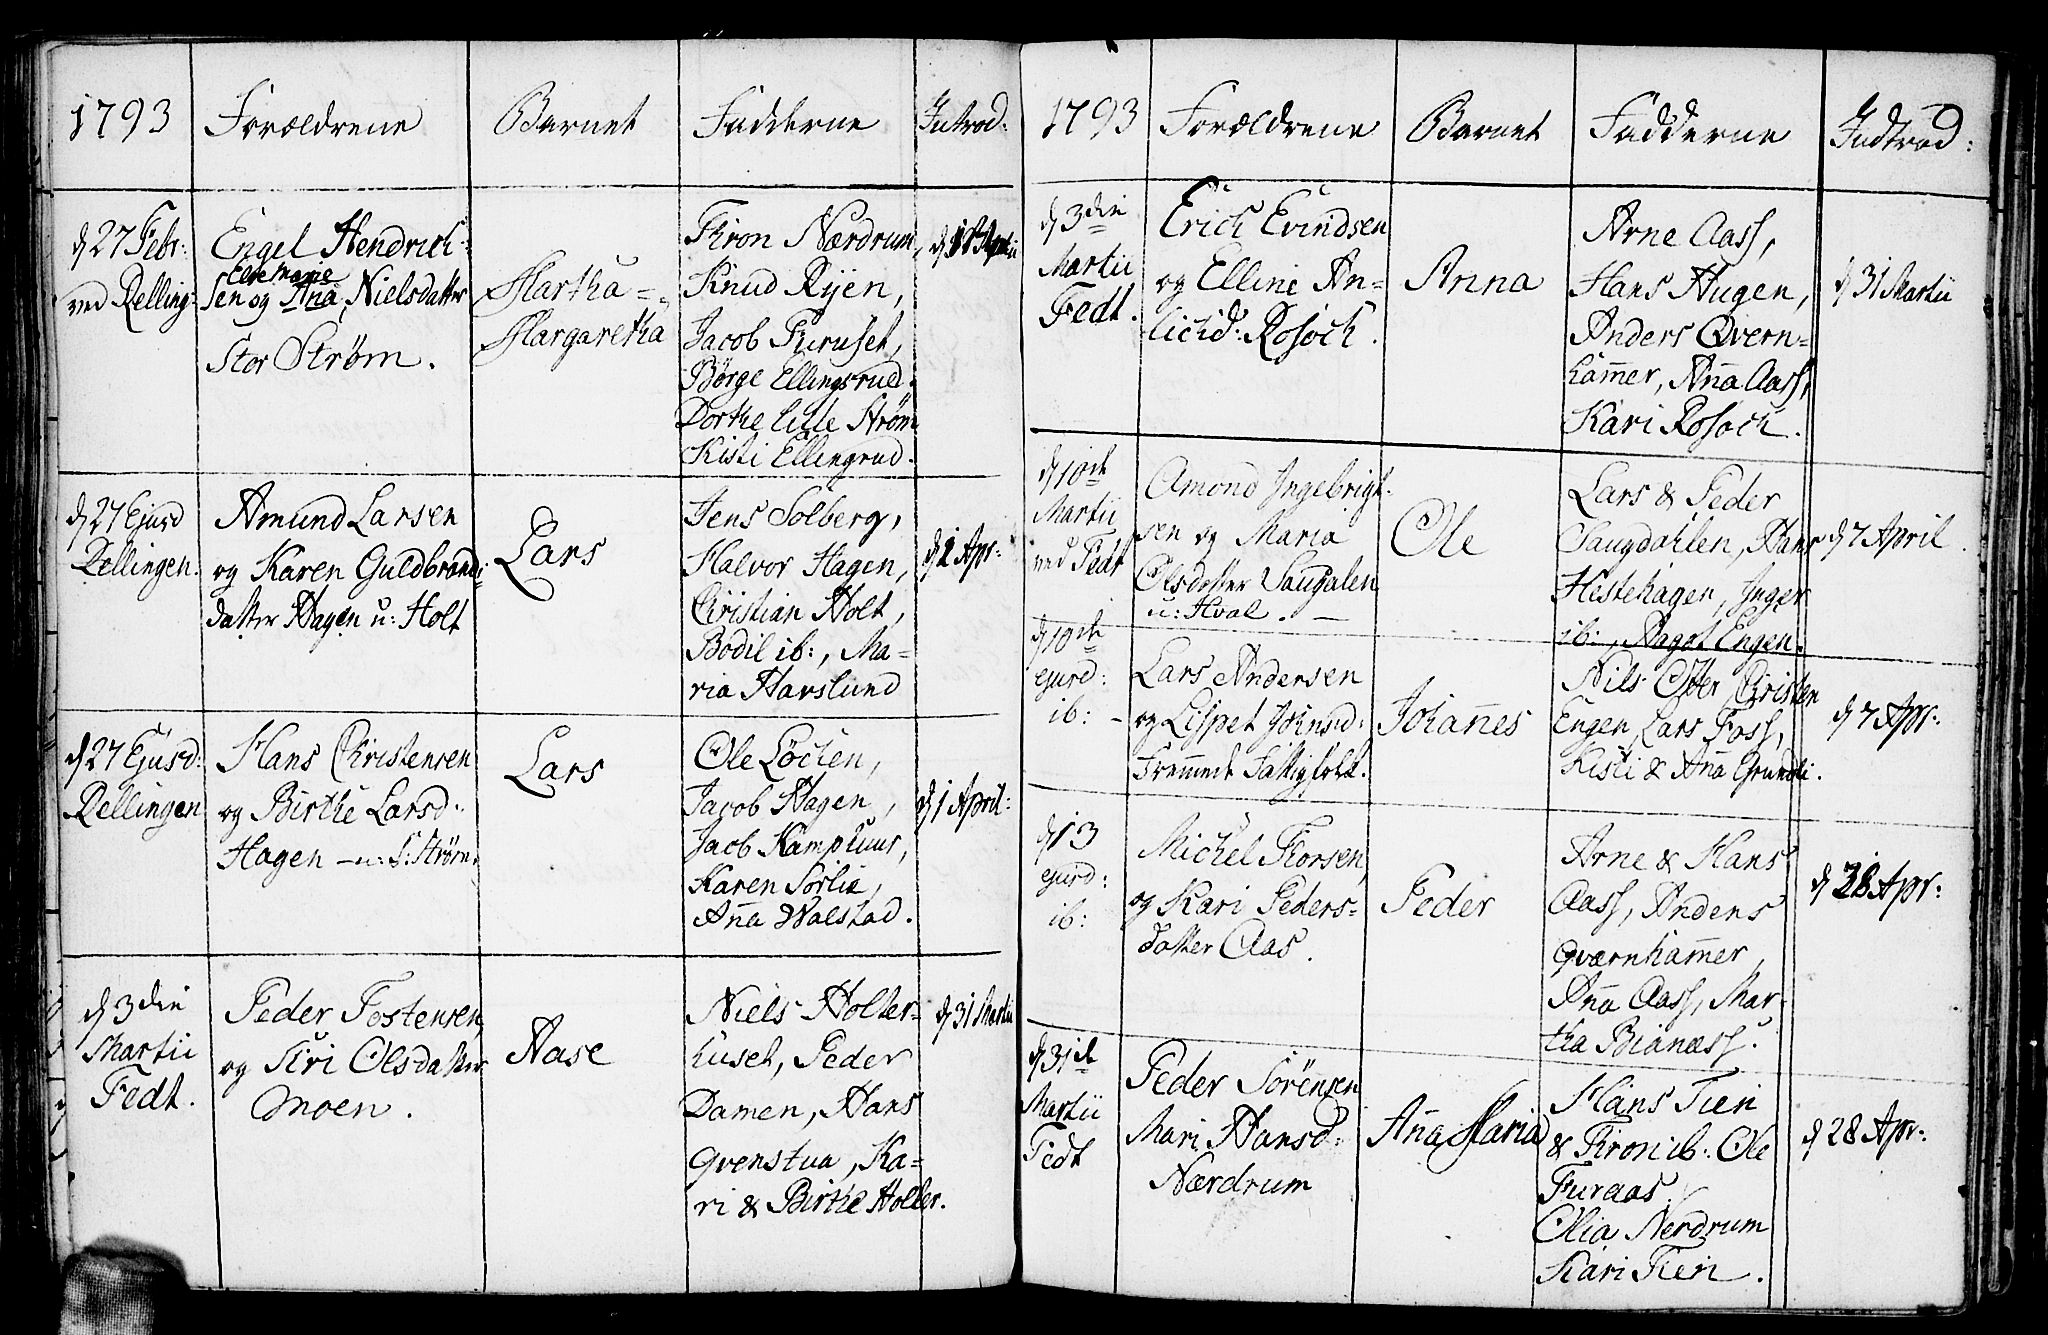 1793
Forældrene
Barnet
Fadderne
Introd:
d 27 Febr:
ved Relling:
Engel Hendrich-
Else Marie
sen og Ana, Nielsdatter
Stor Strøm.
Martha =
Margaretha
Thron Nærdrum,
Knud Ryen,
Jacob Furuset,
Børge Ellingsrud.
Dorthe Lille Strøm
Kisti Ellingrud.
d 27 Ejusd
Rellingen.
Amund Larsen
og Karen Guldbrands
datter Hagen u: Holt
Lars
Jens Solberg,
Halvor Hagen,
Christian Holt,
Bodil ib:, Ma=
ria Harslund
d 1 Apr:
d 27 Ejusd:
Rellingen
Hans Christensen
og Birthe Larsd:
Hagen - u: S: Strøm.
Lars
Ole Løchen,
Jacob Hagen,
Jacob Kamphuus,
Karen Sørlie,
Anna Walstad.
d 1 April:
d 3die
Martii
Fedt.
Peder Tostensen
og Siri Olsdatter
Moen.
Aase
Niels Holter=
huset, Peder
Damen, Hans
Qvenstua, Ka=
ri & Birthe Holter.
d 31 Martii
1793
Forældrene
Barnet
Fadderne
Indtrod:
d 3die
Martii
Fedt.
Erich Evindsen
og Ellini An=
Rosoch.
Anna
Arne Aass,
Hans Hugen,
Anders Qvern=
hammer, Anna Aass,
Kari Rosoch.
d 31 Martii
d 10de
Martii
ved Fedt
Amond Ingebrigt-
sen og Maria
Olsdatter Saugdalen
u: Hval. -
Ole
Lars & Peder
Saugdahlen, Hans
Hestehagen, Inger
ib:, Ragat Engen.
d 7 April.
d 10de
ejusd:
ib: -
Lars Andersen
og Lispet Johnsd:
Fremmede Fattigfolk.
Johannes
Nils Otter Christen
Engen, Lars Foss,
Kisti & Anna Grundti.
d 7 Apr:
d 13
ejusd:
ib:
Michel Thorsen,
og Kari Peders=
datter Aas.
Peder
Arne & Hans
Aass, Anders
Qværnhammer,
Anna Aass, Mar=
tha Bianæss.
d 28 Apr:
d 31te
Martii
Fedt
Peder Sørensen
Mari Hansd:
Nærdrum
Anna Maria
Hans Tien
& Thron ib: Ole
Furaas.
Olia Nerdrum
Kari Tien.
d 28 Apr: